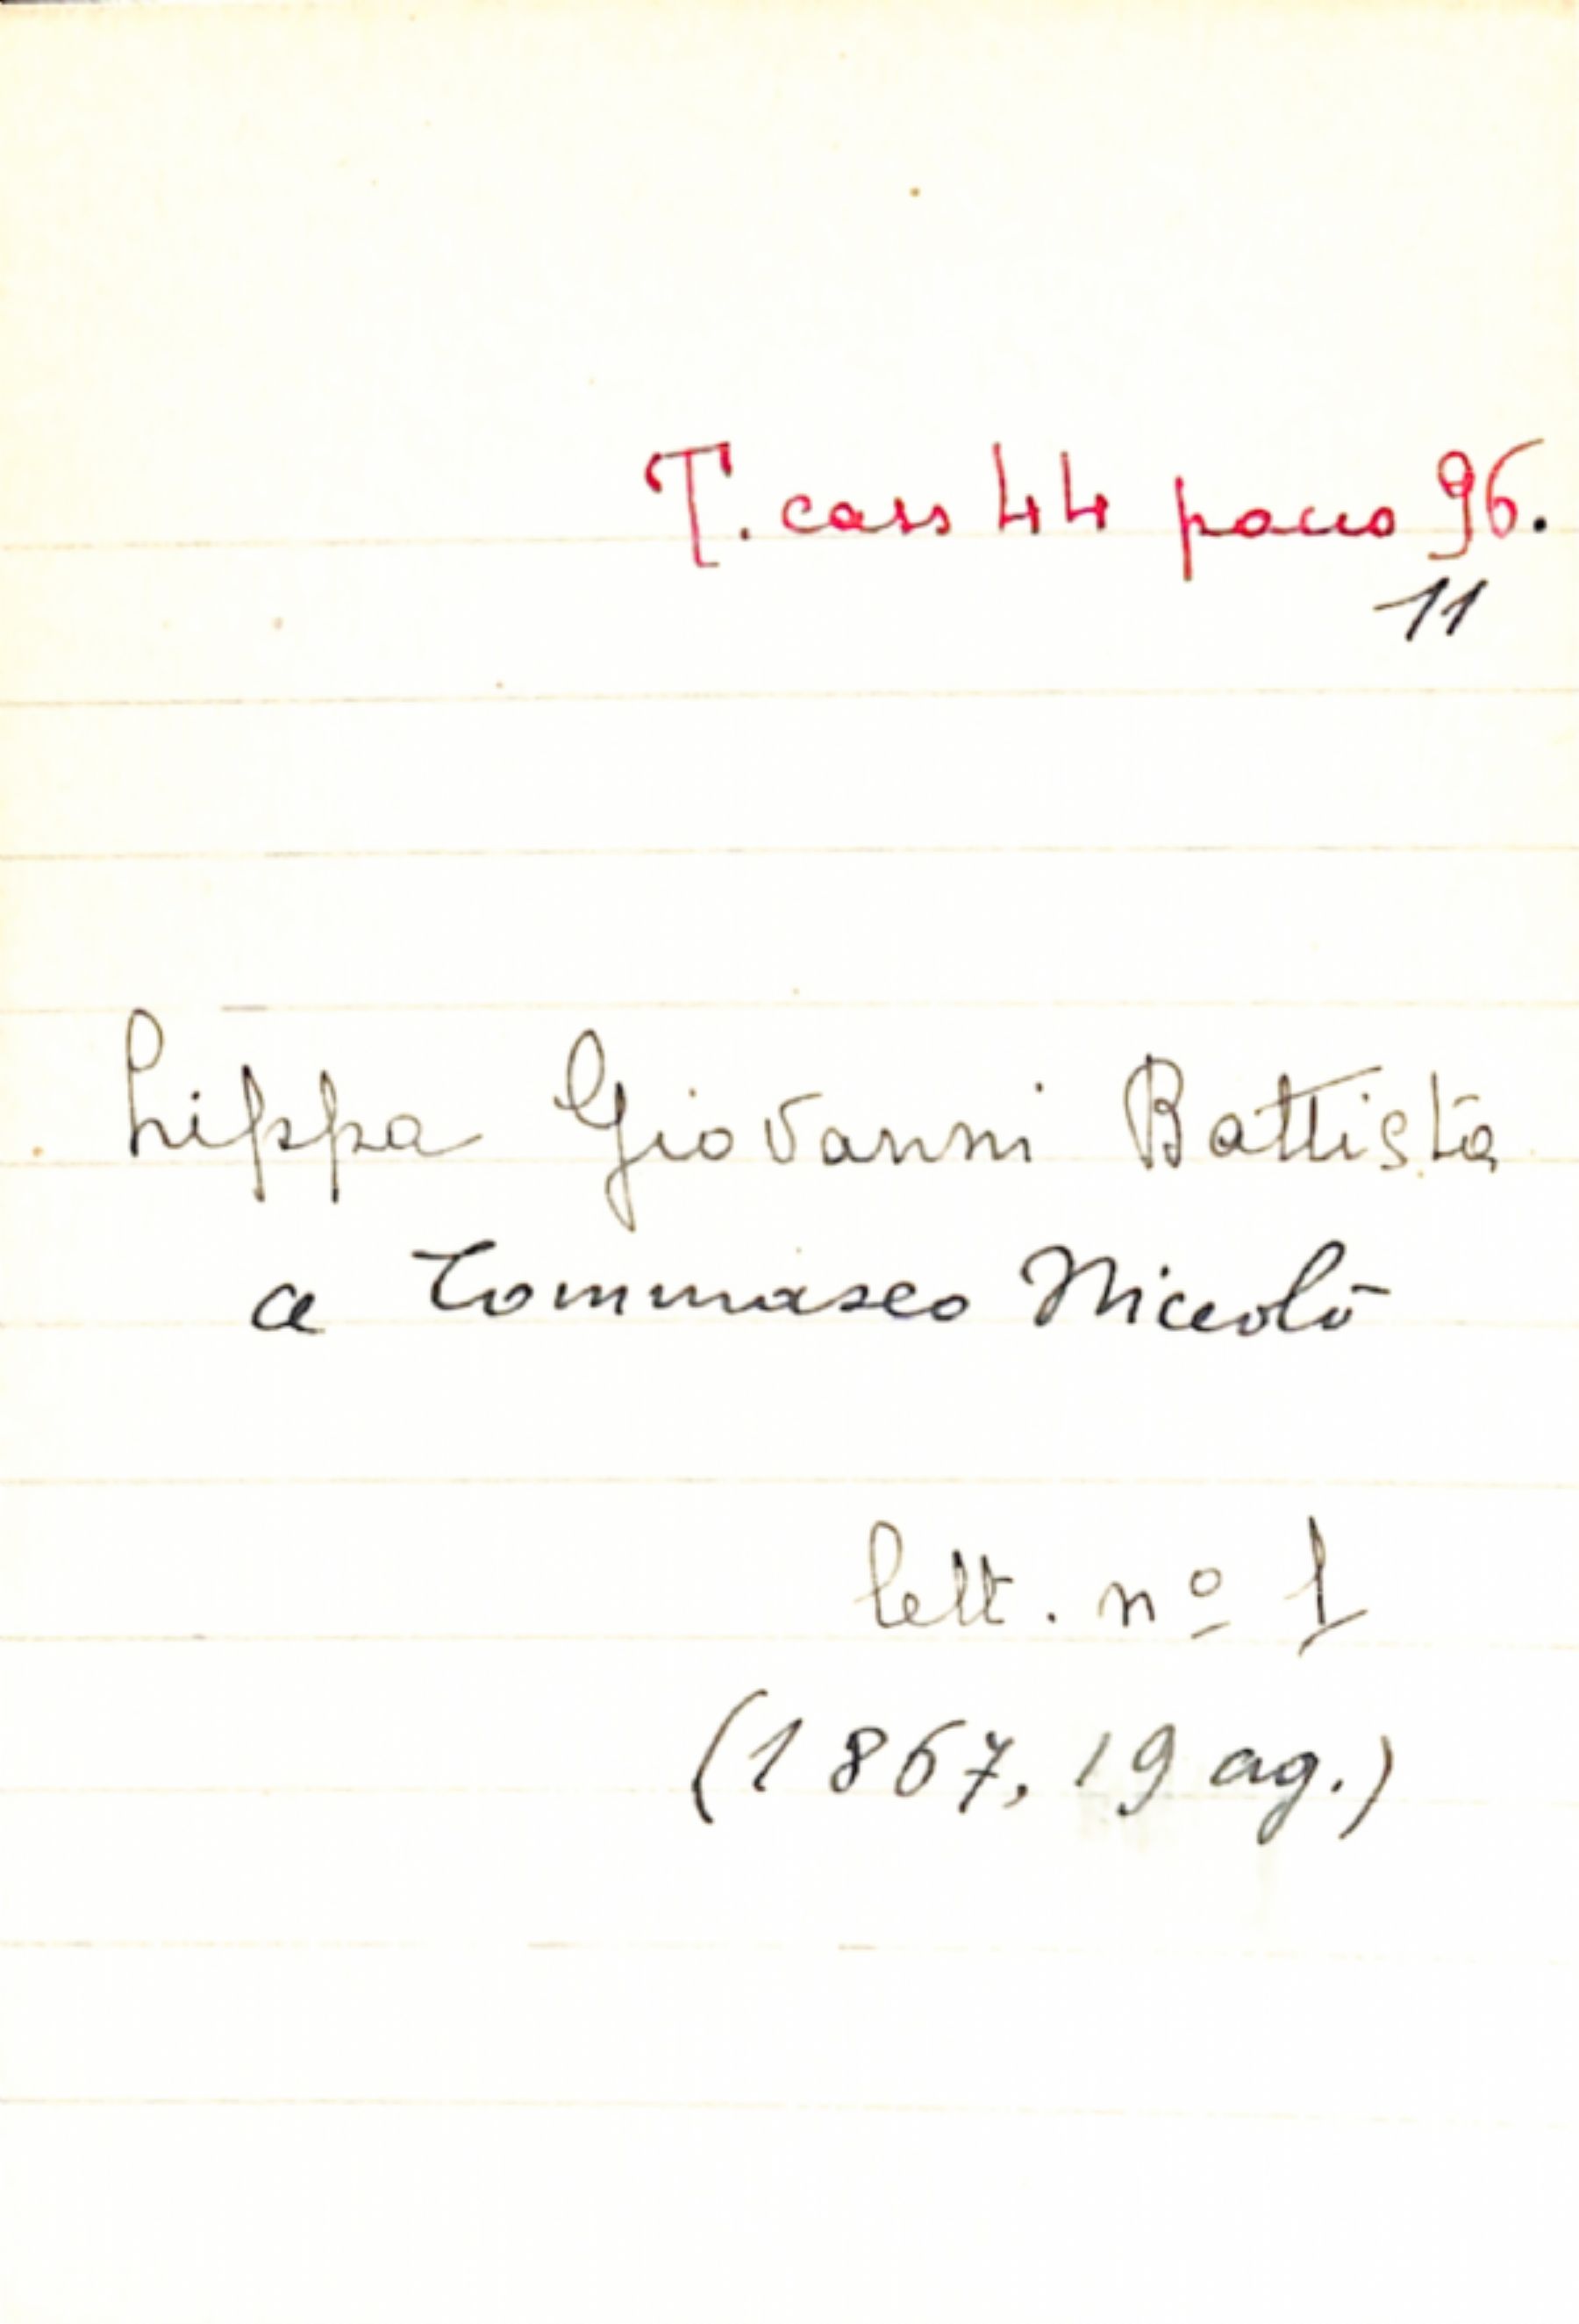 T. cass 44 pacco 96.
11
Lippa Giovanni Battista
a Tommaseo Niccolò
lett. nº 1
(1867, 19 ag.)